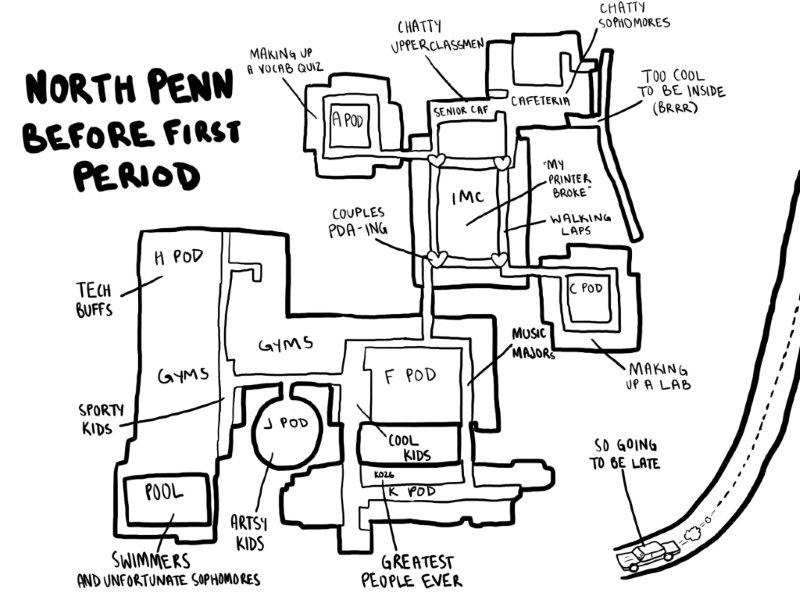 NORTH PENN
BEFORE FIRST
PERIOD
MAKING UP
A VOCAB QUIZ
CHATTY
UPPERCLASSMEN
CHATTY
SOPHOMORES
TOO COOL
TO BE INSIDE
(BRRR)
A POD
SENIOR CAF
CAFETERIA
IMC
"MY
PRINTER
BROKE"
WALKING
LAPS
COUPLES
PDA-ING
C POD
MAKING
UP A LAB
H POD
TECH
BUFFS
GYMS
GYMS
SPORTY
KIDS
MUSIC
MAJORS
F POD
J POD
COOL
KIDS
K026
K POD
POOL
ARTSY
KIDS
SWIMMERS
AND UNFORTUNATE SOPHOMORES
GREATEST
PEOPLE EVER
SO GOING
TO BE LATE